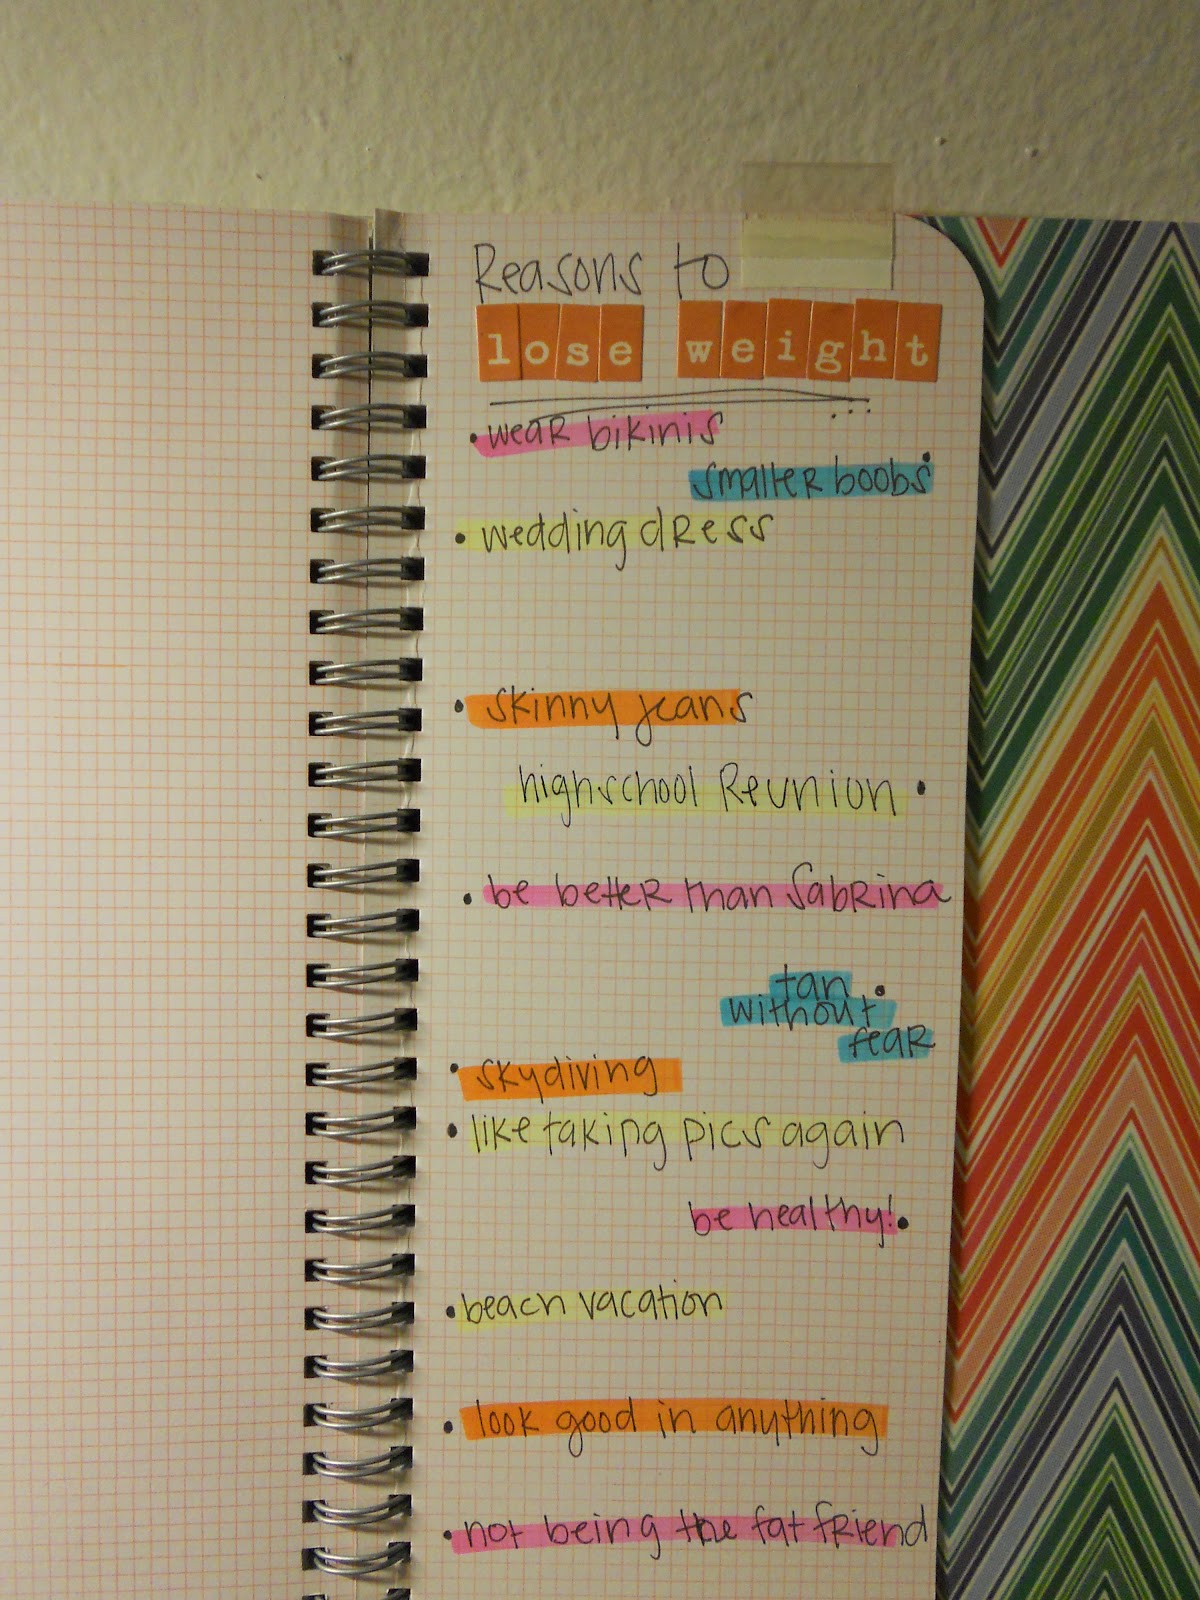 Reasons to
lose weight
...
• wear bikinis
smaller boobs •
• wedding dress
• skinny jeans
highschool Reunion •
• be better than Sabrina
tan •
without
fear
• skydiving
• like taking pics again
be healthy! •
• beach vacation
• look good in anything
• not being the fat friend